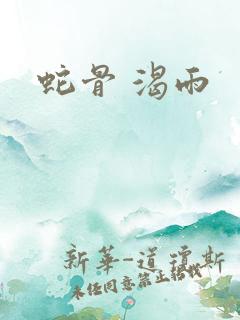 蛇骨 渴雨
新华-道琼斯
未经同意禁止转载